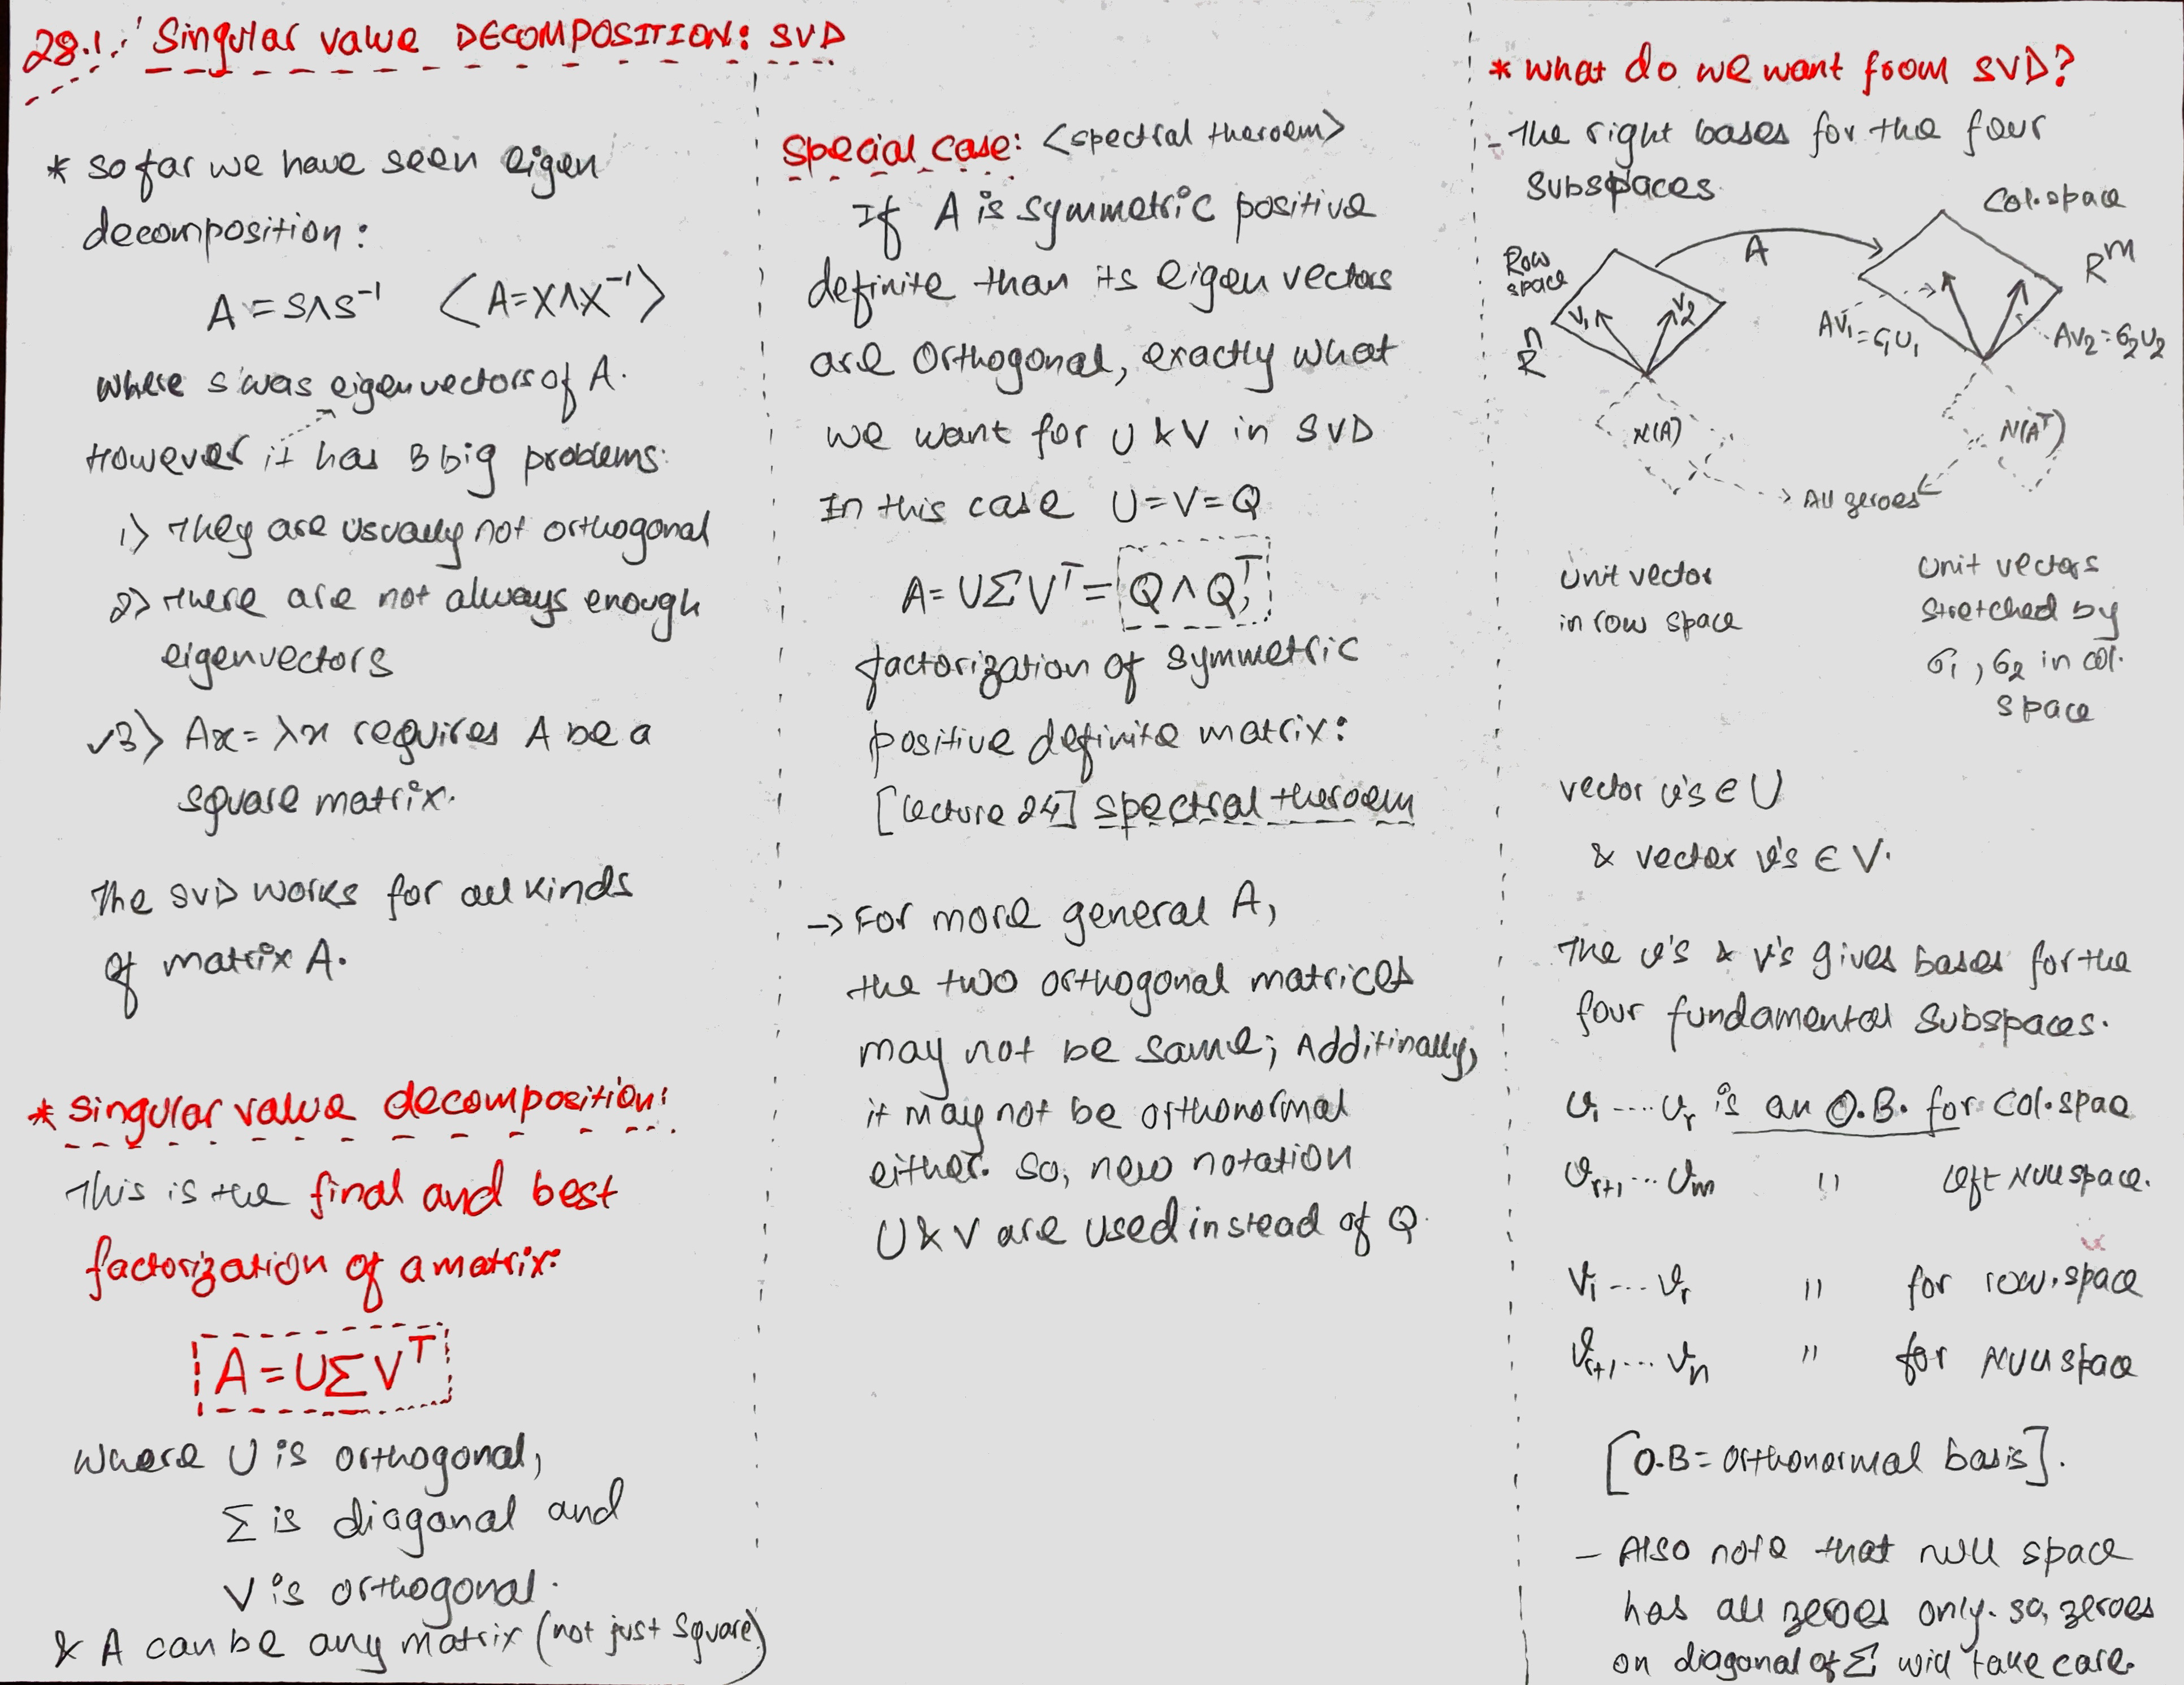 28.1: Singular value DECOMPOSITION: SVD
* so far we have seen eigen
decomposition:
A = SΛS⁻¹ <A=XΛX⁻¹>
where s was eigenvectors of A.
However it has 3 big problems:
1) They are usually not orthogonal
2) there are not always enough
eigenvectors
✓3) Ax = λx requires A be a
square matrix.
The SVD works for all kinds
of matrix A.
* Singular value decomposition:
This is the final and best
factorization of a matrix:
A = UΣVᵀ
where U is orthogonal,
Σ is diagonal and
V is orthogonal.
& A can be any matrix (not just square)
Special case: <spectral theroem>
If A is symmetric positive
definite than its eigen vectors
are orthogonal, exactly what
we want for U & V in SVD
In this case U=V=Q
A = UΣVᵀ = QΛQᵀ,
factorization of symmetric
positive definite matrix:
[lecture 24] spectral theroem
→ For more general A,
the two orthogonal matrices
may not be same; Additinally,
it may not be orthonormal
either. so, new notation
U & V are used instead of Q.
* what do we want from SVD?
- The right bases for the four
subspaces
Col. space
Row
space
A
Rᵐ
V₁
V₂
Rⁿ
AV₁ = σ₁U₁
AV₂ = σ₂U₂
N(A)
N(Aᵀ)
All zeroes
unit vector
in row space
Unit vectors
stretched by
σ₁, σ₂ in col.
space
vector u's ∈ U
& vector v's ∈ V.
The u's & v's gives bases for the
four fundamental subspaces.
U₁ .... Uᵣ is an O.B. for col. space
Uᵣ₊₁ ... Uₘ " left Null space.
V₁ .... Vᵣ " for row. space
Vᵣ₊₁ ... Vₙ " for Null space
[O.B = orthonormal basis].
- Also note that null space
has all zeroes only. so, zeroes
on diagonal of Σ will take care.